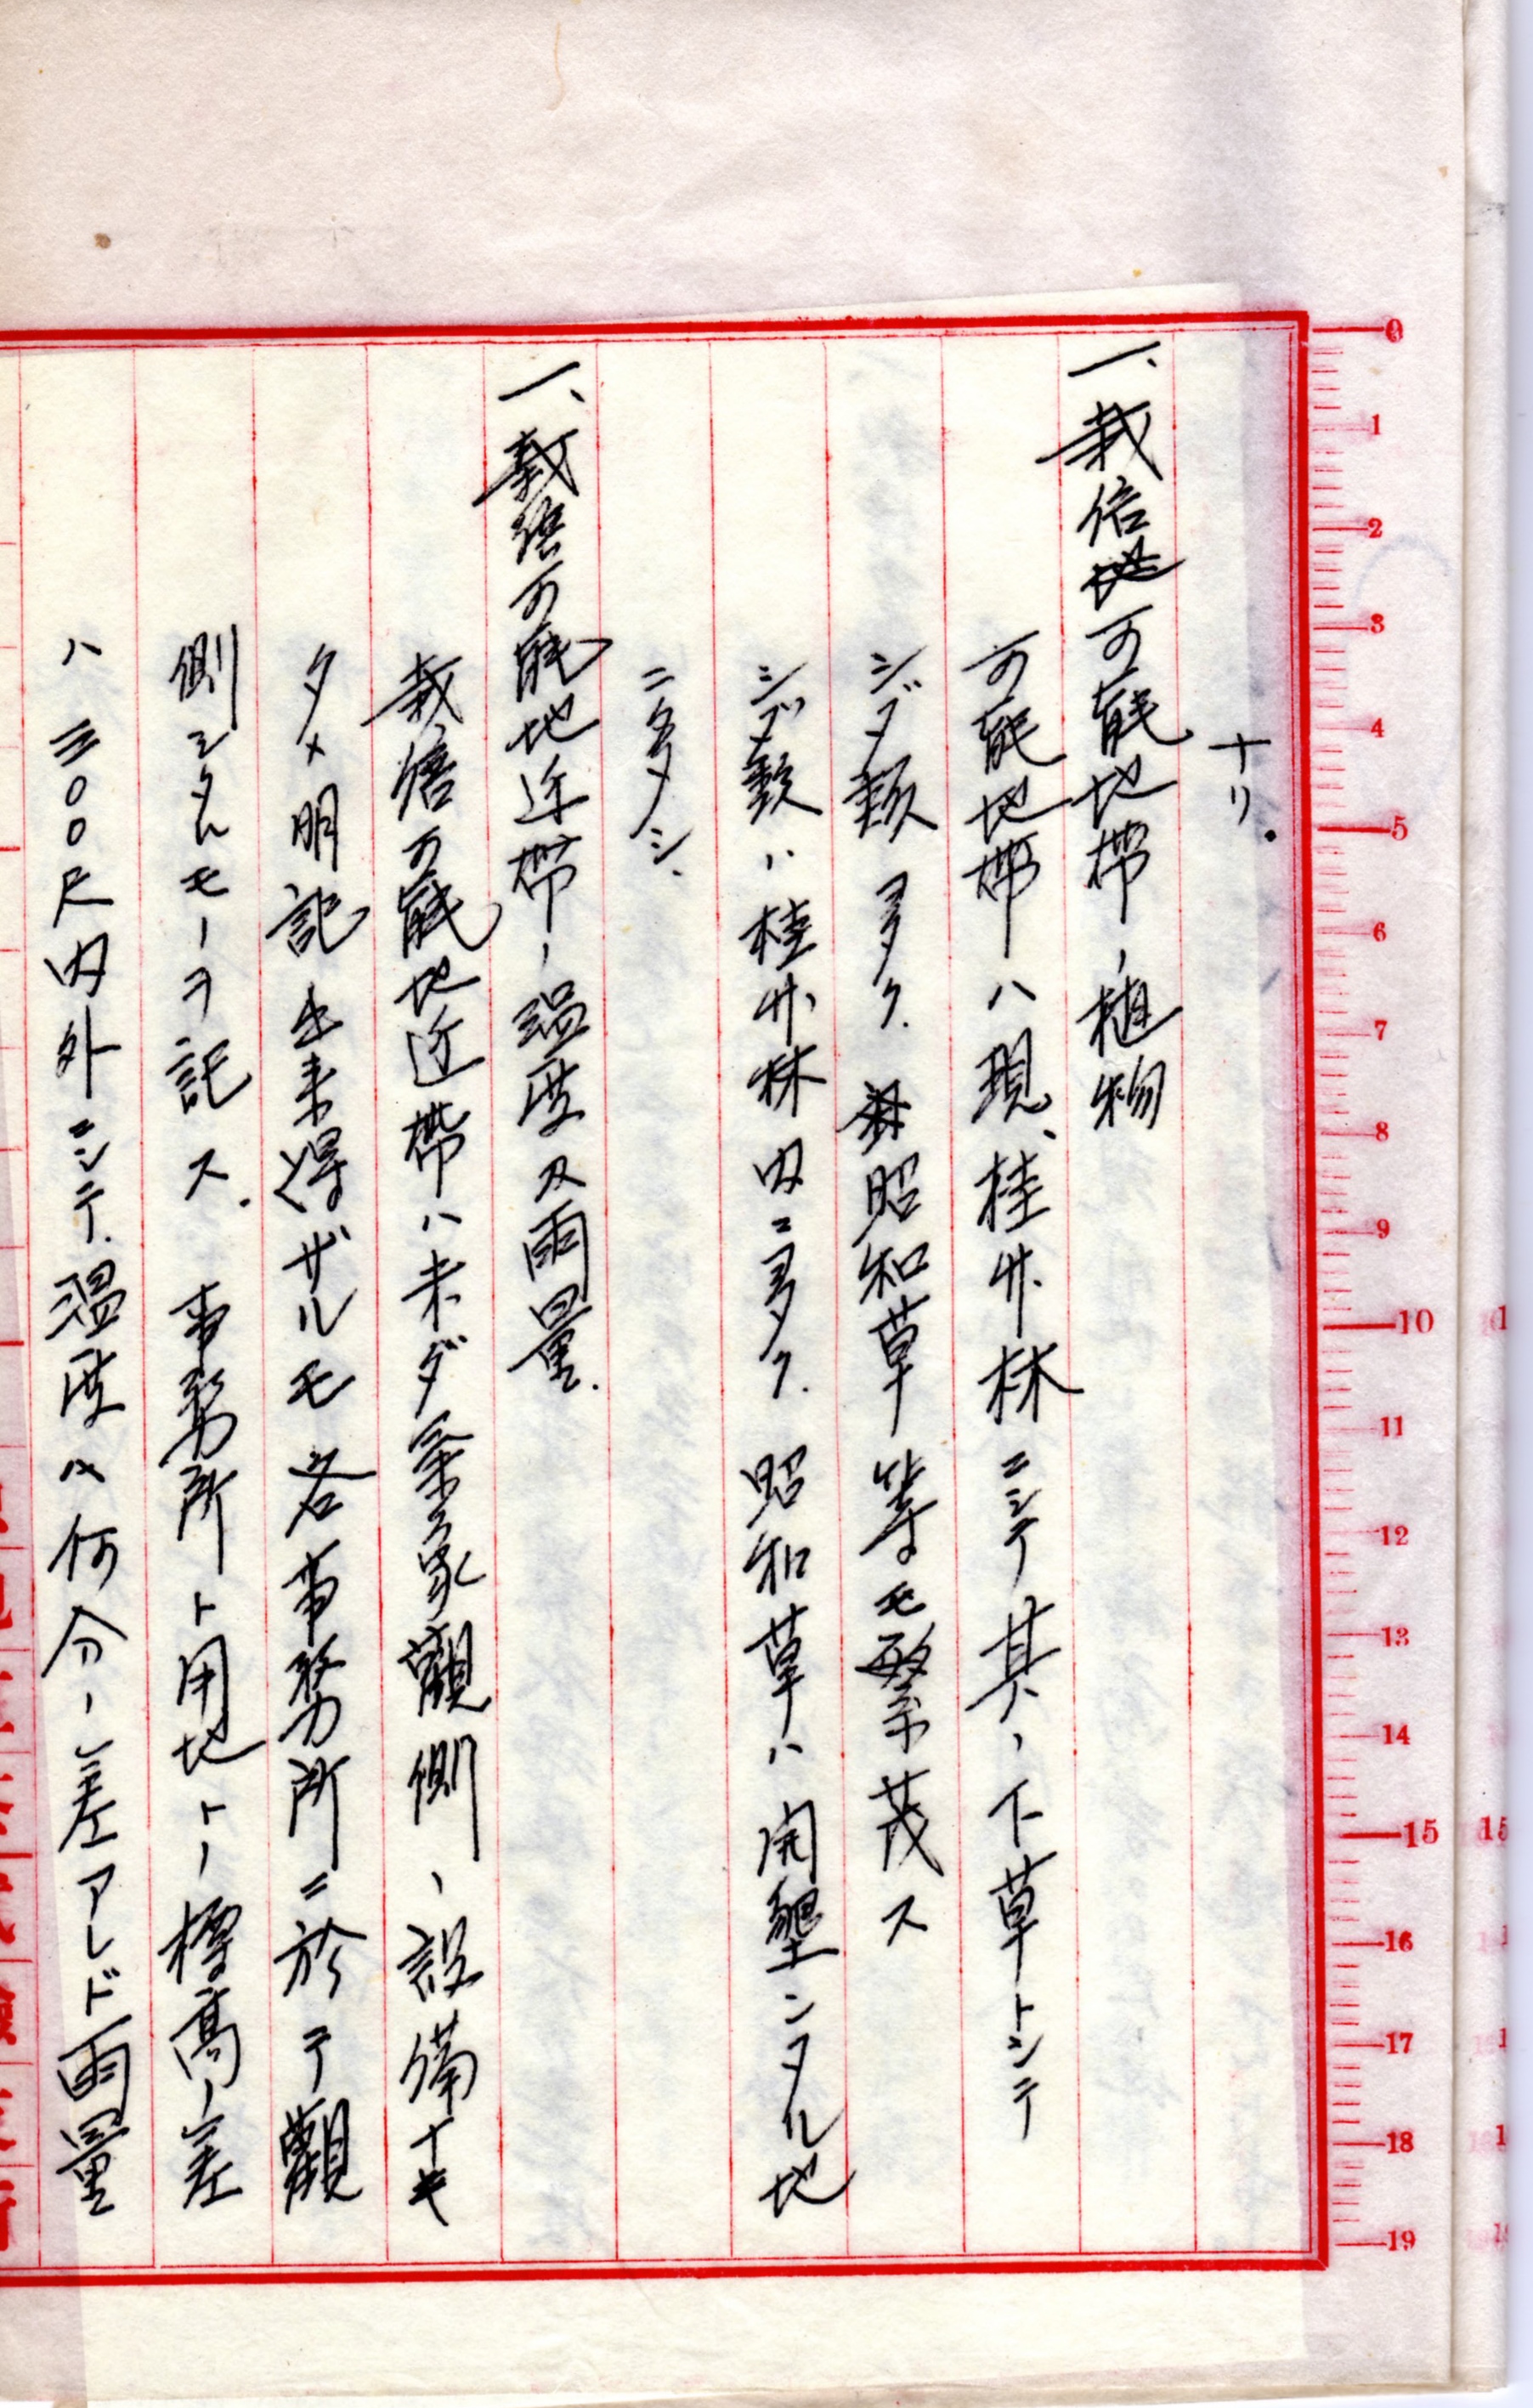 ナリ.
一、栽倍地可能地帯ノ植物
可能地帯ハ現、桂竹林ニシテ其ノ下草トシテ
シダ類多ク.昭和草等モ繁茂ス
シダ類ハ桂竹林内ニ多ク.昭和草ハ開墾シタル地
ニ多シ.
一、栽培可能地近帯ノ温度及雨量.
栽培可能地近帯ハ未ダ気象觀側ノ設備ナキ
タメ明記出来得ザルモ各事務所ニ於テ觀
側シタルモノヲ記ス.事務所ト用地トノ標高ノ差
ハ三〇〇尺内外ニシテ.温度ハ何分ノ差アレド雨量
0
1
2
3
4
5
6
7
8
9
10
11
12
13
14
15
16
17
18
19